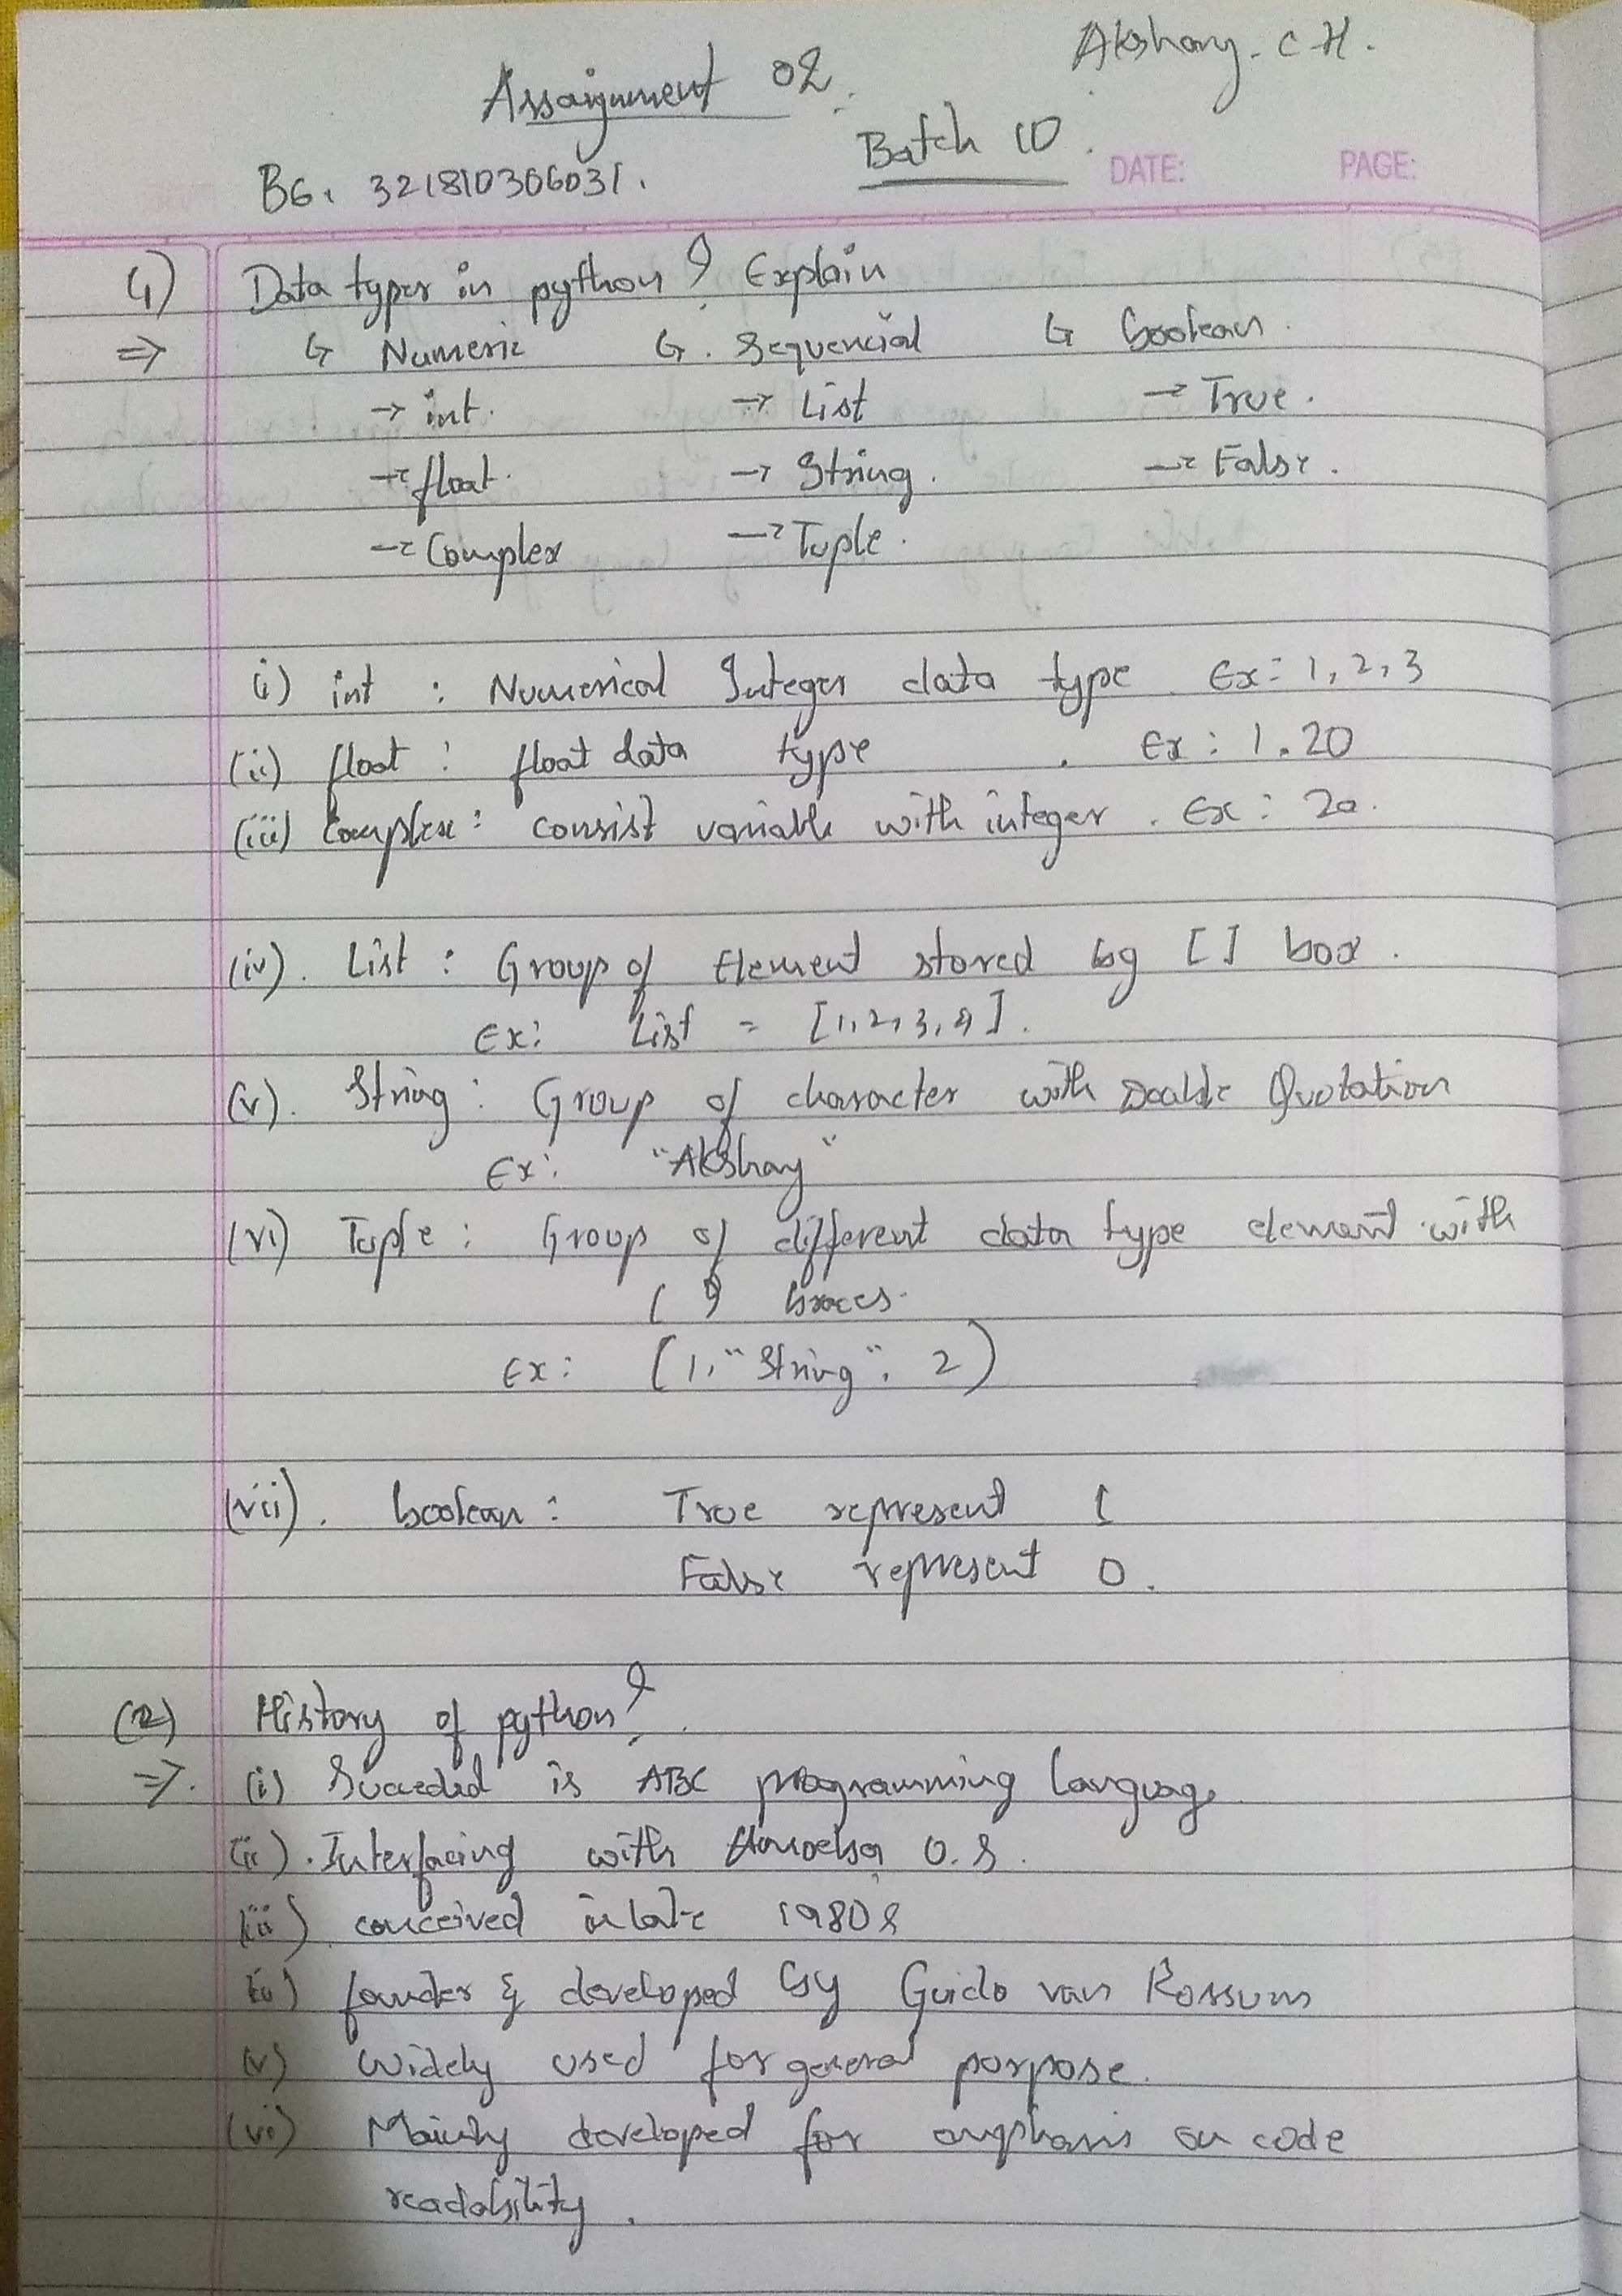 Akshay. C H.
Assaignment 02.
Batch 10.
BG. 321810306031.
DATE: PAGE:
1) Data types in python? Explain
⇒ ↳ Numeric ↳ Sequencial ↳ boolean.
→ int. → List → True.
→ float. → String. → False.
→ Complex → Tuple.
(i) int : Numerical Integer data type. Ex: 1, 2, 3
(ii) float : float data type. Ex : 1.20
(iii) Complex : consist variable with integer. Ex : 2a.
(iv). List : Group of Element stored by [ ] box.
Ex: List = [1,2,3,4].
(v). String : Group of character with Double Quotation
Ex: "Akshay"
(vi) Tuple : Group of different data type element with
( ) braces.
Ex: (1, "String", 2)
(vii). boolean : True represent 1
False represent 0.
(2) History of python?
⇒. (i) Succeded is ABC programming language
(ii). Interfacing with O.S.
(iii) conceived in late 1980s
(iv) founder & developed by Guido van Rossum
(v) widely used for general porpose.
(vi) Mainly developed for emphasis on code
readability.